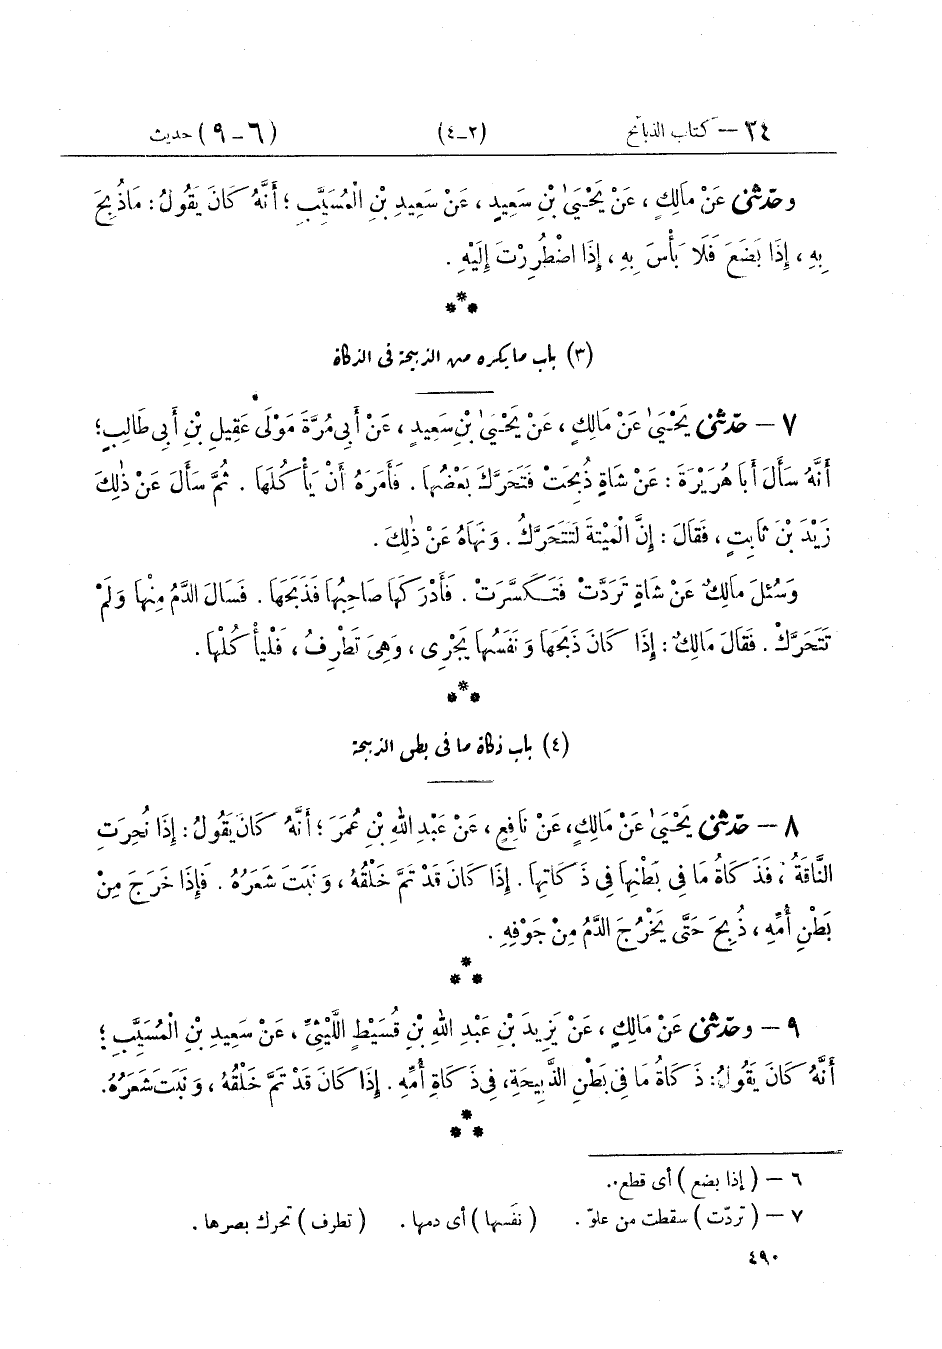 ٢٤ — كتاب الذبائح (٢-٤) (٦ - ٩) حديث
وحدّثنى عَنْ مَالِكٍ ، عَنْ يَحْيَىٰ بْنِ سَعِيدٍ ، عَنْ سَعِيدِ بْنِ الْمُسَيَّبِ ؛ أَنَّهُ كَانَ يَقُولُ : مَاذُبِحَ
بِهِ ، إِذَا بَضَعَ فَلَا بَأْسَ بِهِ ، إِذَا اضْطُرِرْتَ إِلَيْهِ .
***
(٣) باب ما يكره من الذبيحة فى الذكاة
٧ — حدّثنى يَحْيَىٰ عَنْ مَالِكٍ ، عَنْ يَحْيَىٰ بْنِ سَعِيدٍ ، عَنْ أَبِى مُرَّةَ مَوْلَى عَقِيلِ بْنِ أَبِى طَالِبٍ ؛
أَنَّهُ سَأَلَ أَبَا هُرَيْرَةَ : عَنْ شَاةٍ ذُبِحَتْ فَتَحَرَّكَ بَعْضُهَا . فَأَمَرَهُ أَنْ يَأْكُلَهَا . ثُمَّ سَأَلَ عَنْ ذٰلِكَ
زَيْدَ بْنَ ثَابِتٍ ، فَقَالَ : إِنَّ الْمَيْتَةَ لَتَتَحَرَّكُ . وَنَهَاهُ عَنْ ذٰلِكَ .
وَسُئلَ مَالِكٌ عَنْ شَاةٍ تَرَدَّتْ فَتَكَسَّرَتْ . فَأَدْرَكَهَا صَاحِبُهَا فَذَبَحَهَا . فَسَالَ الدَّمُ مِنْهَا وَلَمْ
تَتَحَرَّكْ . فَقَالَ مَالِكٌ : إِذَا كَانَ ذَبَحَهَا وَنَفَسُهَا يَجْرِى ، وَهِىَ تَطْرِفُ ، فَلْيَأْكُلْهَا .
***
(٤) باب ذكاة ما فى بطن الذبيحة
٨ — حدّثنى يَحْيَىٰ عَنْ مَالِكٍ، عَنْ نَافِعٍ ، عَنْ عَبْدِ اللهِ بْنِ عُمَرَ ؛ أَنَّهُ كَانَ يَقُولُ : إِذَا نُحِرَتِ
النَّاقَةُ ، فَذَكَاةُ مَا فِى بَطْنِهَا فِى ذَكَاتِهَا . إِذَا كَانَ قَدْ تَمَّ خَلْقُهُ ، وَنَبَتَ شَعَرُهُ . فَإِذَا خَرَجَ مِنْ
بَطْنِ أُمِّهِ ، ذُبِحَ حَتَّى يَخْرُجَ الدَّمُ مِنْ جَوْفِهِ .
***
٩ — وحدّثنى عَنْ مَالِكٍ ، عَنْ يَزِيدَ بْنِ عَبْدِ اللهِ بْنِ قُسَيْطٍ اللَّيْثِىِّ ، عَنْ سَعِيدِ بْنِ الْمُسَيَّبِ ؛
أَنَّهُ كَانَ يَقُولُ : ذَكَاةُ مَا فِى بَطْنِ الذَّبِيحَةِ، فِى ذَكَاةِ أُمِّهِ . إِذَا كَانَ قَدْ تَمَّ خَلْقُهُ ، وَنَبَتَ شَعَرُهُ .
***
٦ — (إذا بضع) أى قطع .
٧ — (تردّت) سقطت من علوّ . (نفَسها) أى دمها . (تطرف) تحرك بصرها .
٤٩٠